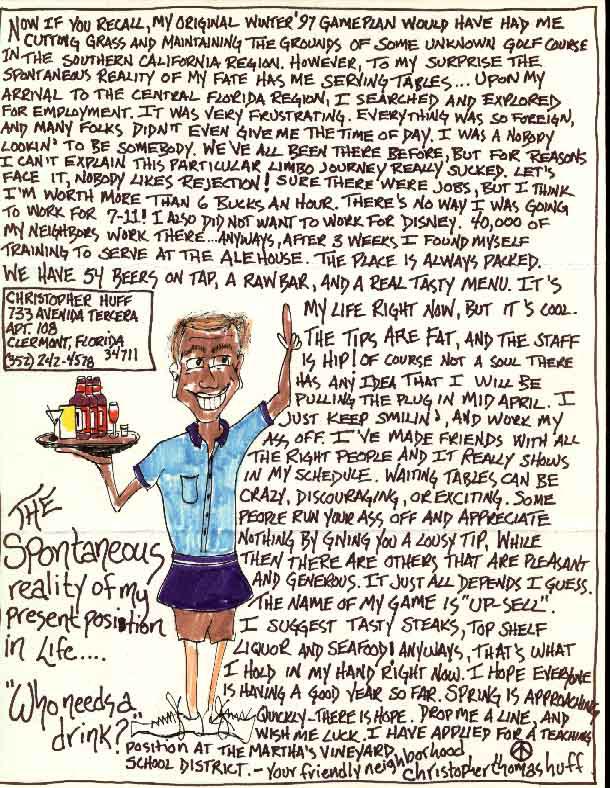 NOW IF YOU RECALL, MY ORIGINAL WINTER '97 GAMEPLAN WOULD HAVE HAD ME
CUTTING GRASS AND MAINTAINING THE GROUNDS OF SOME UNKNOWN GOLF COURSE
IN THE SOUTHERN CALIFORNIA REGION. HOWEVER, TO MY SURPRISE THE
SPONTANEOUS REALITY OF MY FATE HAS ME SERVING TABLES... UPON MY
ARRIVAL TO THE CENTRAL FLORIDA REGION, I SEARCHED AND EXPLORED
FOR EMPLOYMENT. IT WAS VERY FRUSTRATING. EVERYTHING WAS SO FOREIGN,
AND MANY FOLKS DIDN'T EVEN GIVE ME THE TIME OF DAY. I WAS A NOBODY
LOOKIN' TO BE SOMEBODY. WE'VE ALL BEEN THERE BEFORE, BUT FOR REASONS
I CAN'T EXPLAIN THIS PARTICULAR LIMBO JOURNEY REALLY SUCKED. LET'S
FACE IT, NOBODY LIKES REJECTION! SURE THERE WERE JOBS, BUT I THINK
I'M WORTH MORE THAN 6 BUCKS AN HOUR. THERE'S NO WAY I WAS GOING
TO WORK FOR 7-11! I ALSO DID NOT WANT TO WORK FOR DISNEY. 40,000 OF
MY NEIGHBORS WORK THERE...ANYWAYS, AFTER 3 WEEKS I FOUND MYSELF
TRAINING TO SERVE AT THE ALE HOUSE. THE PLACE IS ALWAYS PACKED.
WE HAVE 54 BEERS ON TAP, A RAW BAR, AND A REAL TASTY MENU. IT'S
MY LIFE RIGHT NOW, BUT IT'S COOL.
THE TIPS ARE FAT, AND THE STAFF
IS HIP! OF COURSE NOT A SOUL THERE
HAS ANY IDEA THAT I WILL BE
PULLING THE PLUG IN MID APRIL. I
JUST KEEP SMILIN', AND WORK MY
ASS OFF. I'VE MADE FRIENDS WITH ALL
THE RIGHT PEOPLE AND IT REALLY SHOWS
IN MY SCHEDULE. WAITING TABLES CAN BE
CRAZY, DISCOURAGING, OR EXCITING. SOME
PEOPLE RUN YOUR ASS OFF AND APPRECIATE
NOTHING BY GIVING YOU A LOUSY TIP, WHILE
THEN THERE ARE OTHERS THAT ARE PLEASANT
AND GENEROUS. IT JUST ALL DEPENDS I GUESS.
THE NAME OF MY GAME IS "UP-SELL".
I SUGGEST TASTY STEAKS, TOP SHELF
LIQUOR AND SEAFOOD! ANYWAYS, THAT'S WHAT
I HOLD IN MY HAND RIGHT NOW. I HOPE EVERYONE
IS HAVING A GOOD YEAR SO FAR. SPRING IS APPROACHING
QUICKLY-THERE IS HOPE. DROP ME A LINE, AND
WISH ME LUCK. I HAVE APPLIED FOR A TEACHING
POSITION AT THE MARTHA'S VINEYARD
SCHOOL DISTRICT. - Your friendly neighborhood
christopher thomas huff
CHRISTOPHER HUFF
733 AVENIDA TERCERA
APT. 108
CLERMONT, FLORIDA
34711
(352) 242-4578
THE
Spontaneous
reality of my
present position
in Life....
"Who needs a
drink?"